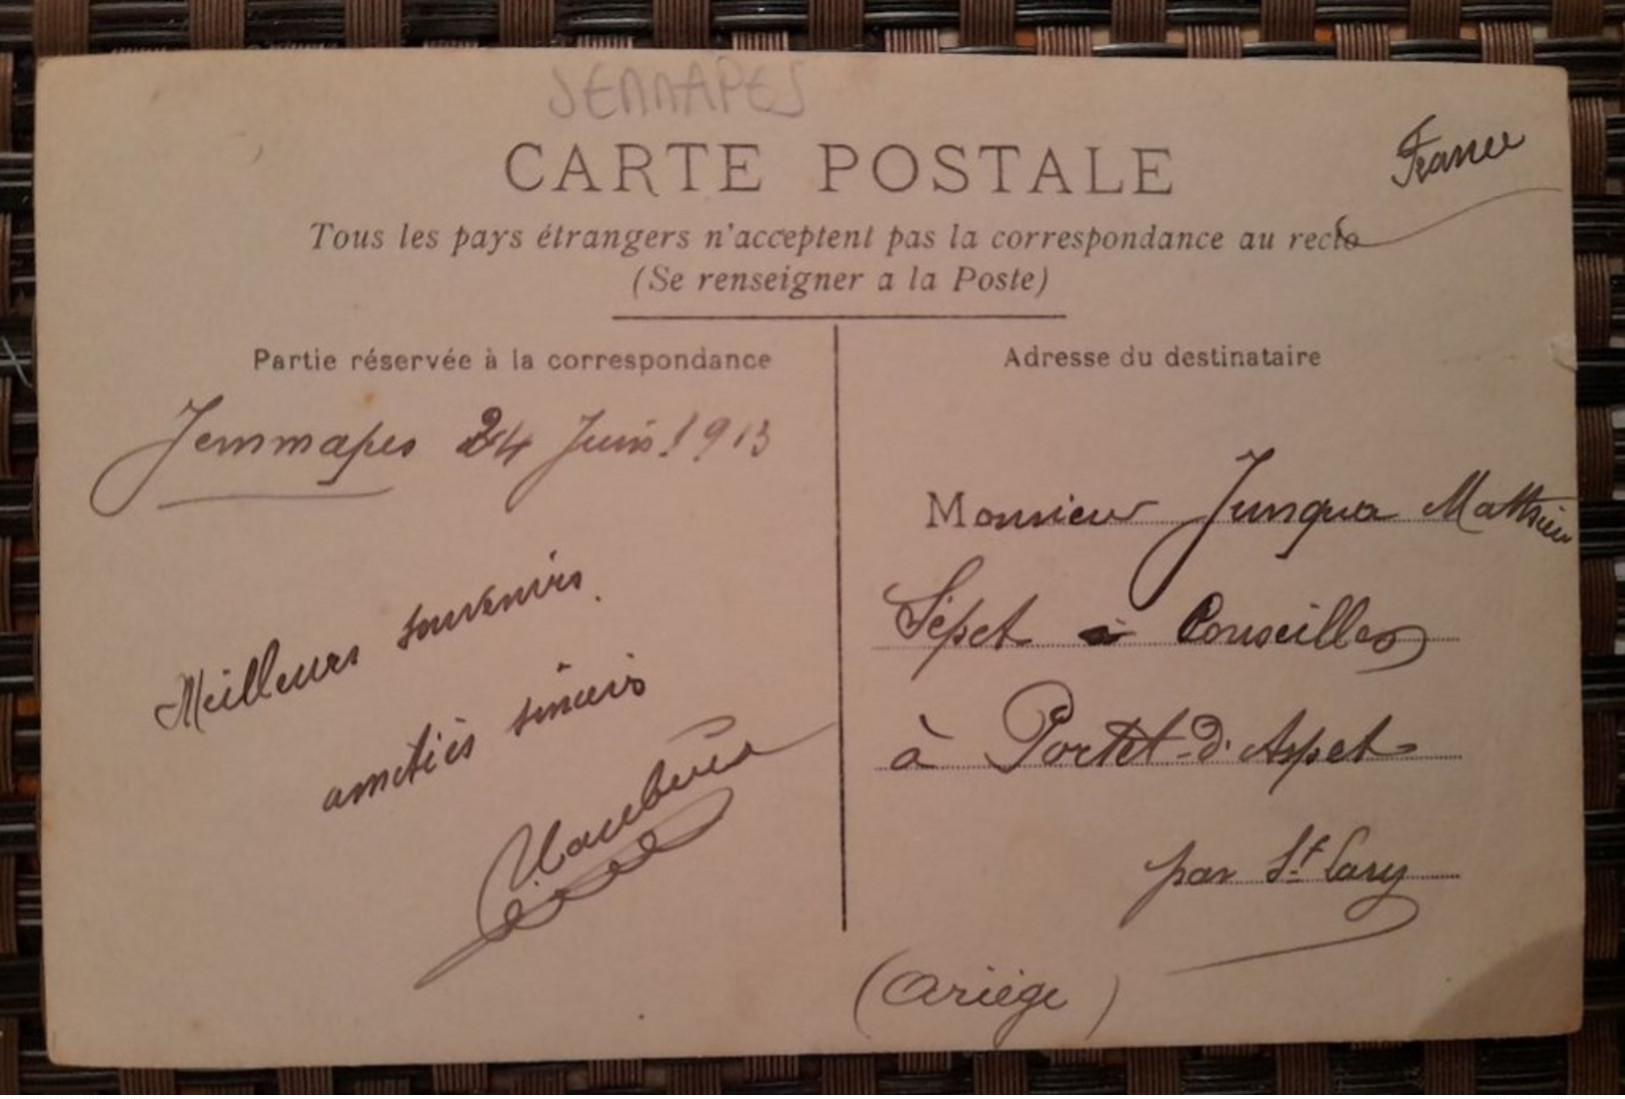 JEMMAPES
CARTE POSTALE
France
Tous les pays étrangers n'acceptent pas la correspondance au recto
(Se renseigner a la Poste)
Partie réservée à la correspondance
Jemmapes 24 Juin 1913
Meilleurs souvenirs
amitiés sincères
Adresse du destinataire
Monsieur Junqua Mathieu
Sépet à Conseiller
à Portet-d'Aspet
par St Lary
(Ariège)